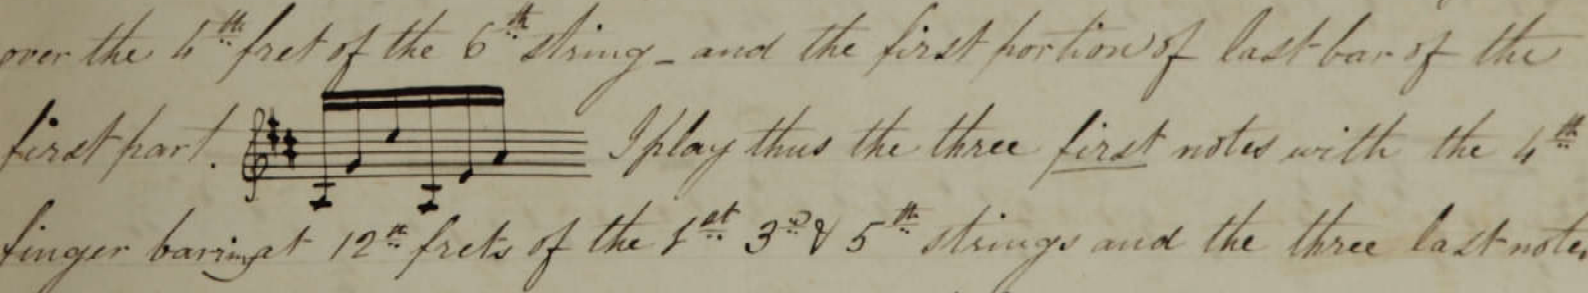 over the 4th fret of the 6th string - and the first portion of last bar of the
first part. I play thus the three first notes with the 4th
finger barring at 12th frets of the 1st 3d & 5th strings and the three last notes